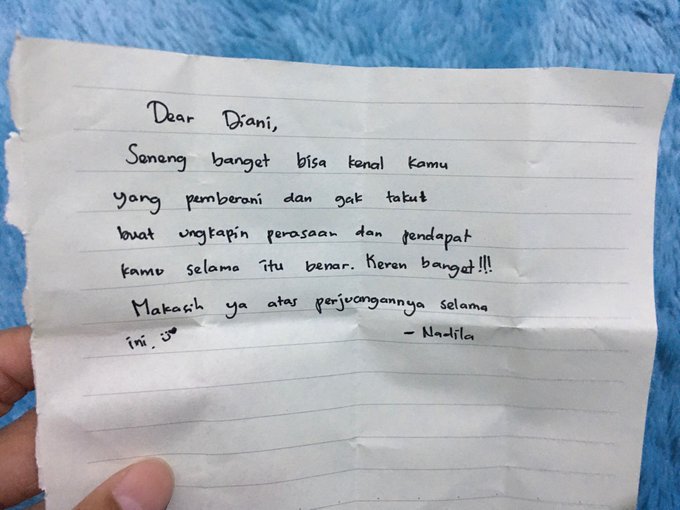 Dear Diani,
Seneng banget bisa kenal kamu
yang pemberani dan gak takut
buat ungkapin perasaan dan pendapat
kamu selama itu benar. Keren banget!!!
Makasih ya atas perjuangannya selama
ini.
- Nadila